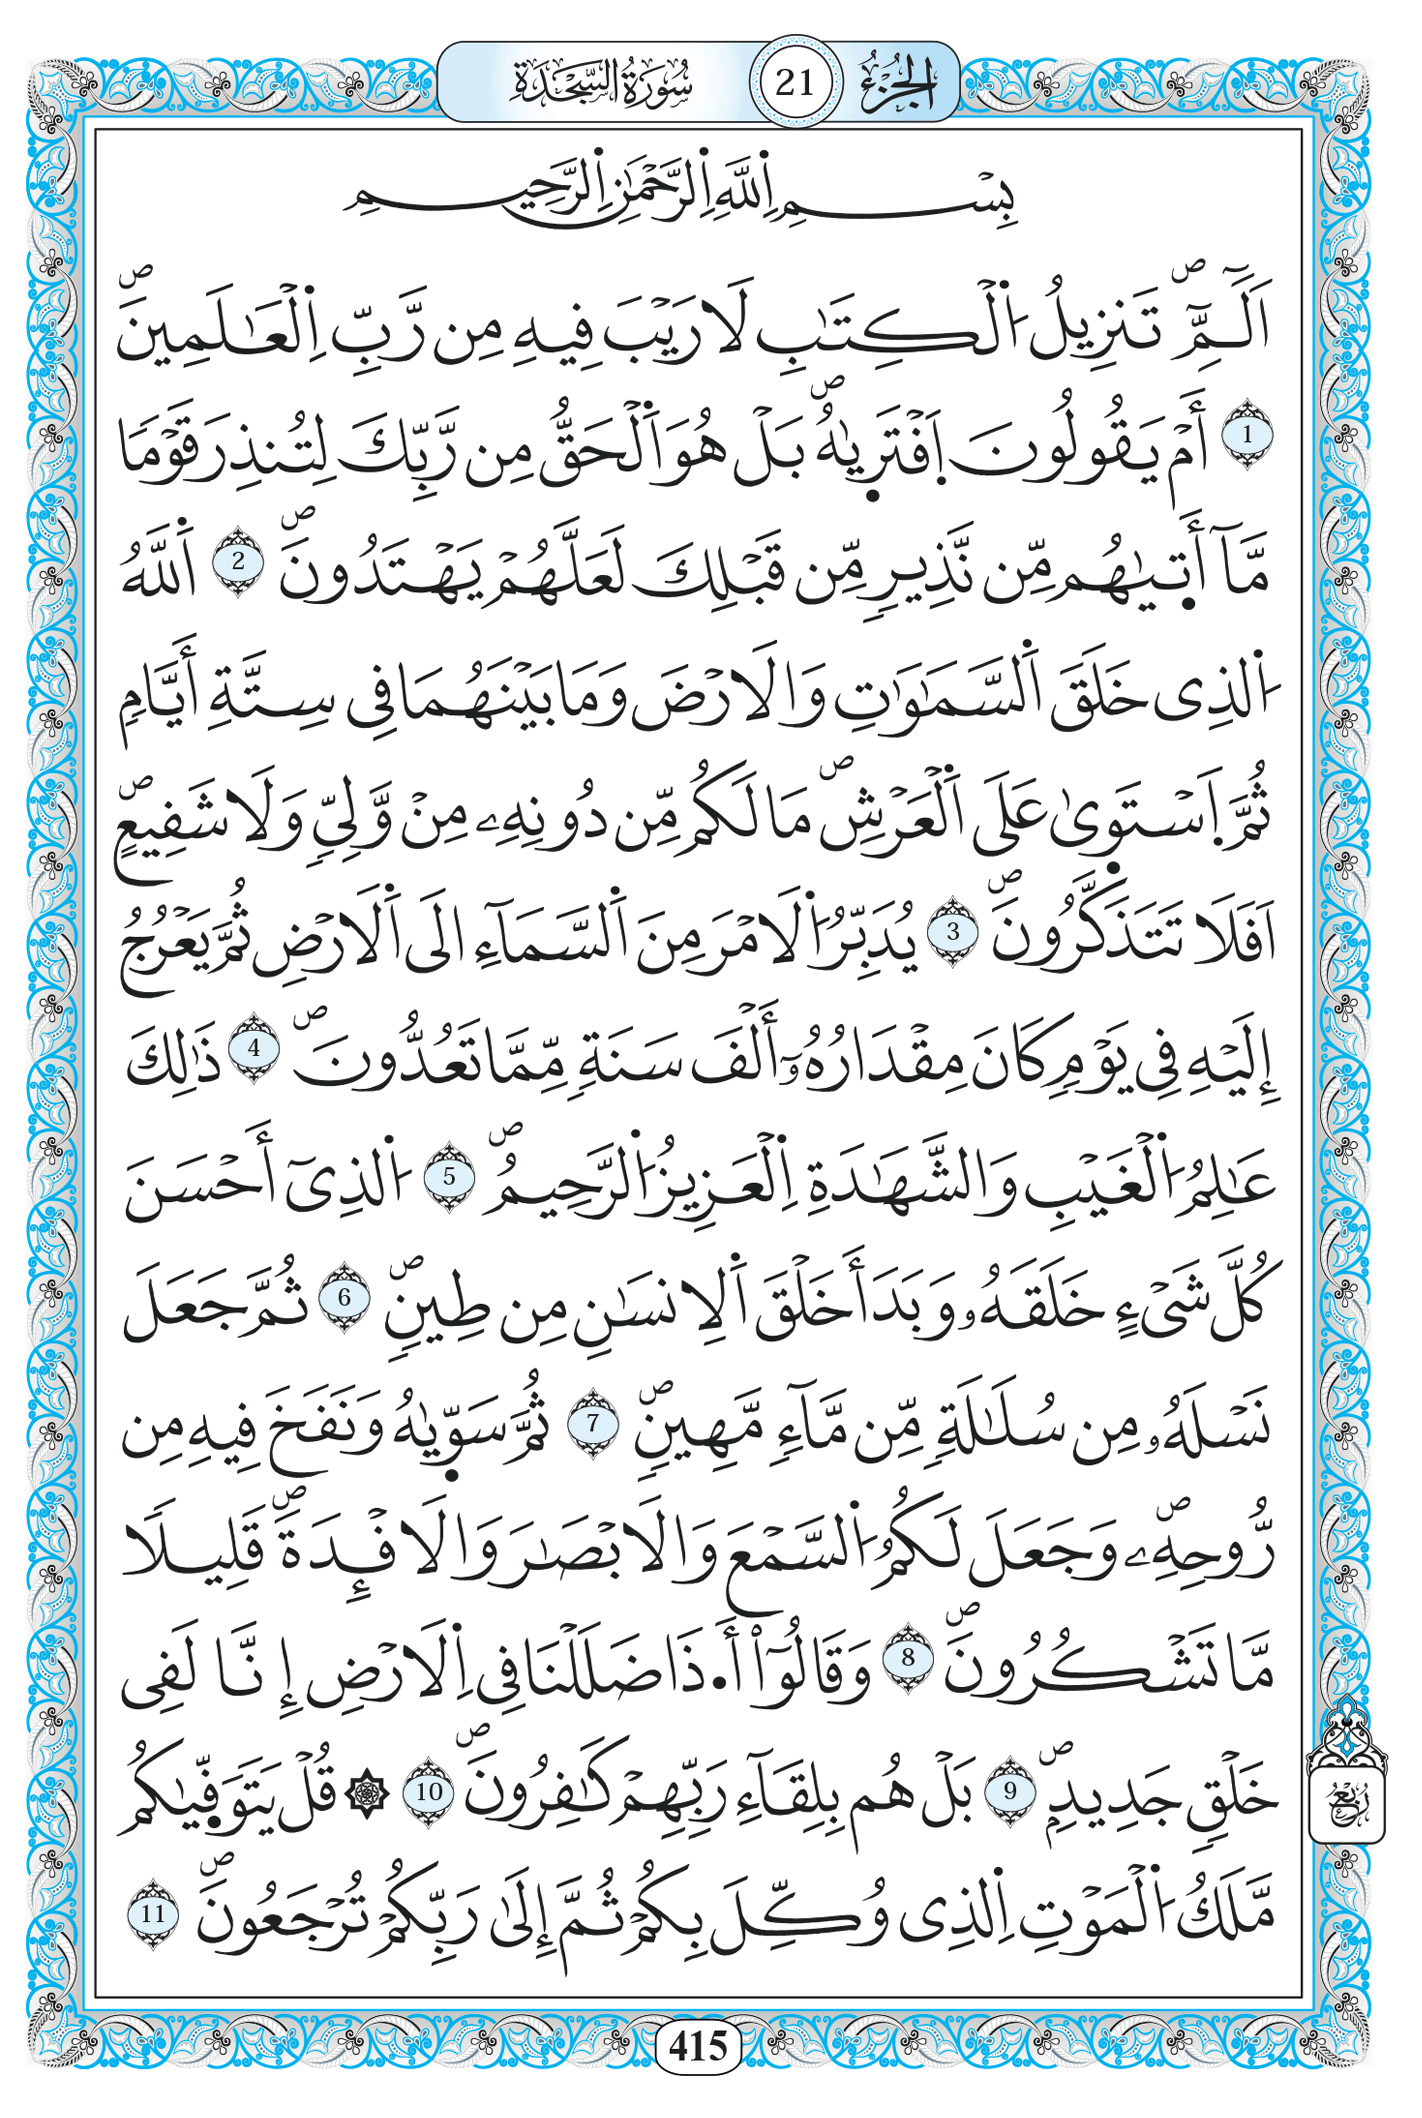 الجزء 21 سورة السجدة
بِسْمِ اِللَّهِ اِلرَّحْمَٰنِ اِلرَّحِيمِ
اَلَٓمِّٓۖ تَنزِيلُ اُ۬لْكِتَٰبِ لَا رَيْبَ فِيهِ مِن رَّبِّ اِ۬لْعَٰلَمِينَۖ
1 أَمْ يَقُولُونَ اَ۪فْتَر۪يٰهُۖ بَلْ هُوَ اَ۬لْحَقُّ مِن رَّبِّكَ لِتُنذِرَ قَوْمٗا
مَّآ أَت۪يٰهُم مِّن نَّذِيرٖ مِّن قَبْلِكَ لَعَلَّهُمْ يَهْتَدُونَۖ 2 اَ۬للَّهُ
اُ۬لذِى خَلَقَ اَ۬لسَّمَٰوَٰتِ وَالَارْضَ وَمَا بَيْنَهُمَا فِى سِتَّةِ أَيَّامٖ
ثُمَّ اَ۪سْتَو۪يٰ عَلَى اَ۬لْعَرْشِۖ مَا لَكُم مِّن دُونِهِۦ مِنْ وَّلِيّٖ وَلَا شَفِيعٍۖ
اَفَلَا تَتَذَكَّرُونَۖ 3 يُدَبِّرُ اُ۬لَامْرَ مِنَ اَ۬لسَّمَآءِ الَى اَ۬لَارْضِ ثُمَّ يَعْرُجُ
إِلَيْهِ فِى يَوْمٖ كَانَ مِقْدَارُهُۥٓ أَلْفَ سَنَةٖ مِّمَّا تَعُدُّونَۖ 4 ذَٰلِكَ
عَٰلِمُ اُ۬لْغَيْبِ وَالشَّهَٰدَةِ اِ۬لْعَزِيزُ اُ۬لرَّحِيمُۖ 5 اُ۬لذِىٓ أَحْسَنَ
كُلَّ شَىْءٍ خَلَقَهُۥ وَبَدَأَ خَلْقَ اَ۬لِانسَٰنِ مِن طِينٖۖ 6 ثُمَّ جَعَلَ
نَسْلَهُۥ مِن سُلَٰلَةٖ مِّن مَّآءٖ مَّهِينٖۖ 7 ثُمَّ سَوّ۪يٰهُ وَنَفَخَ فِيهِ مِن
رُّوحِهِۦۖ وَجَعَلَ لَكُمُ اُ۬لسَّمْعَ وَالَابْصَٰرَ وَالَافْـِٕدَةَۖ قَلِيلٗا
مَّا تَشْكُرُونَۖ 8 وَقَالُوٓاْ أَ.ذَا ضَلَلْنَا فِى اِ۬لَارْضِ إِنَّا لَفِى
خَلْقٖ جَدِيدٖۖ 9 بَلْ هُم بِلِقَآءِ رَبِّهِمْ كَٰفِرُونَۖ 10 ۞ قُلْ يَتَوَفّ۪يٰكُم
مَّلَكُ اُ۬لْمَوْتِ اِ۬لذِى وُكِّلَ بِكُمْ ثُمَّ إِلَىٰ رَبِّكُمْ تُرْجَعُونَۖ 11
ربع
415